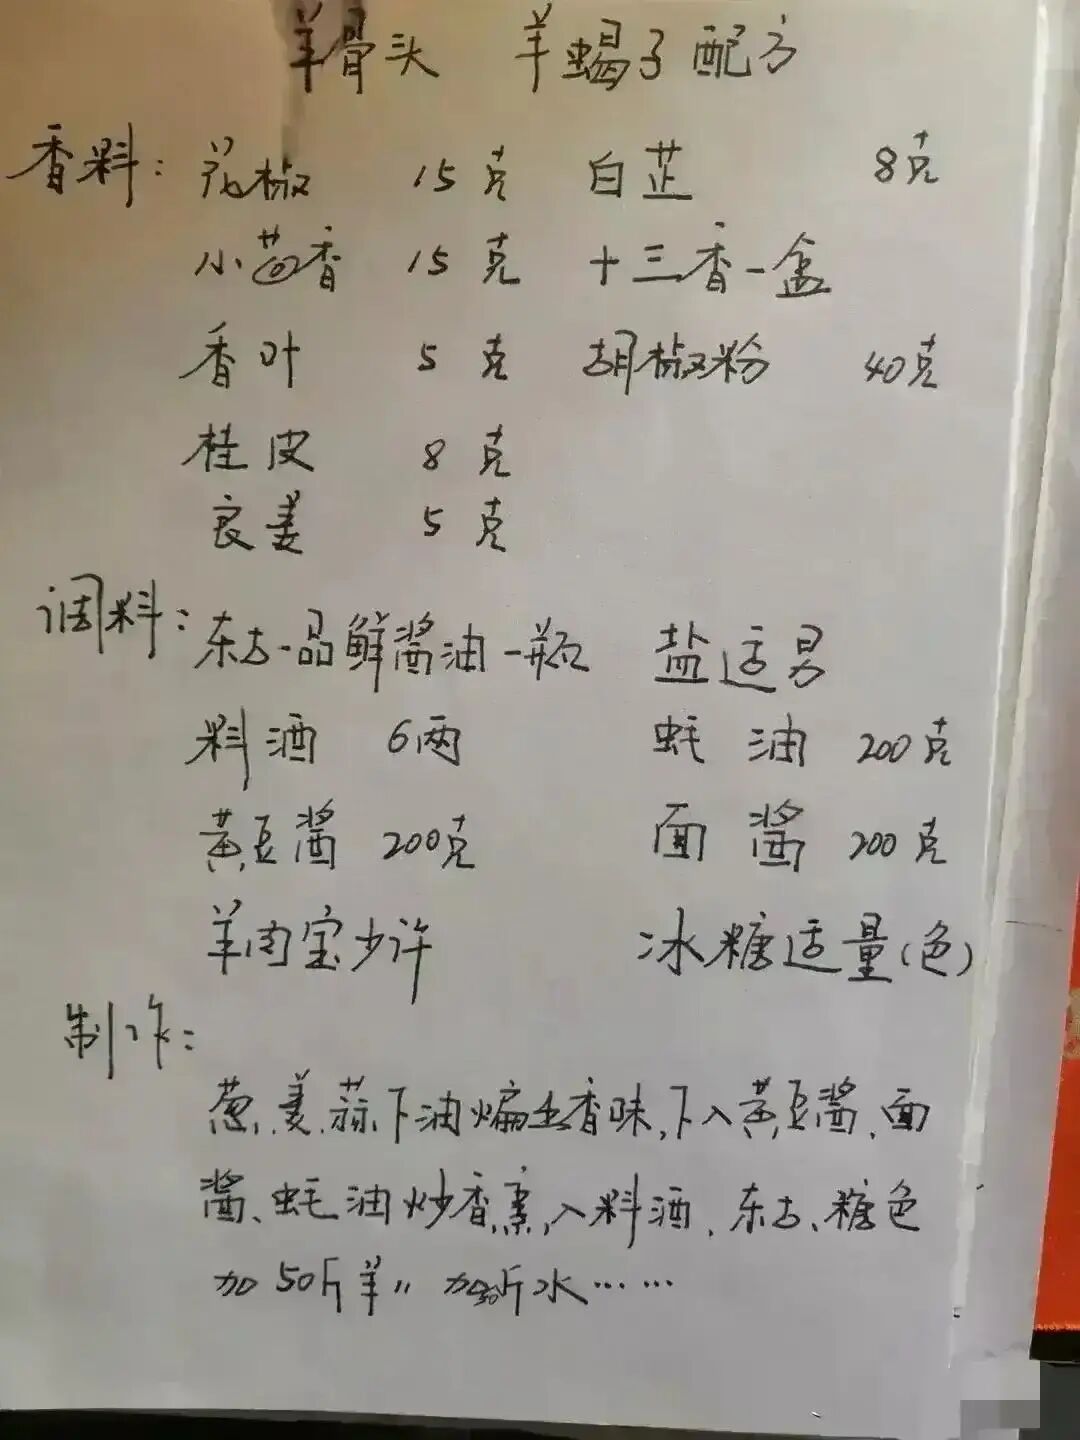 羊骨头 羊蝎子配方
香料: 花椒 15克 白芷 8克
小茴香 15克 十三香一盒
香叶 5克 胡椒粉 40克
桂皮 8克
良姜 5克
调料: 东古一品鲜酱油一瓶 盐适易
料酒 6两 蚝油 200克
黄豆酱 200克 面酱 200克
羊肉宝少许 冰糖适量(色)
制作:
葱、姜、蒜下油煸出香味,下入黄豆酱、面
酱、蚝油炒香,入料酒、东古、糖色
加50斤羊〃 加 斤水……